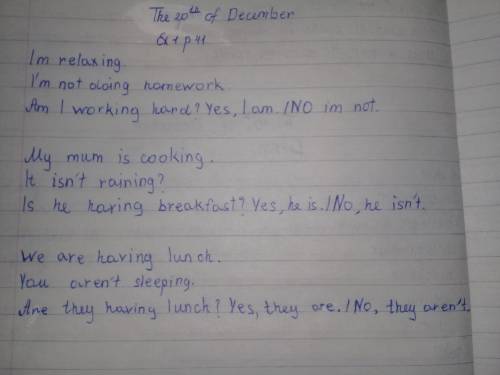 The 20th of December
Ex 1 p 41
Im relaxing.
I'm not doing homework.
Am I working hard? Yes, I am. /NO im not.
My mum is cooking.
It isn't raining?
Is he having breakfast? Yes, he is. /No, he isn't.
We are having lunch.
You aren't sleeping.
Are they having lunch? Yes, they are. /No, they aren't.